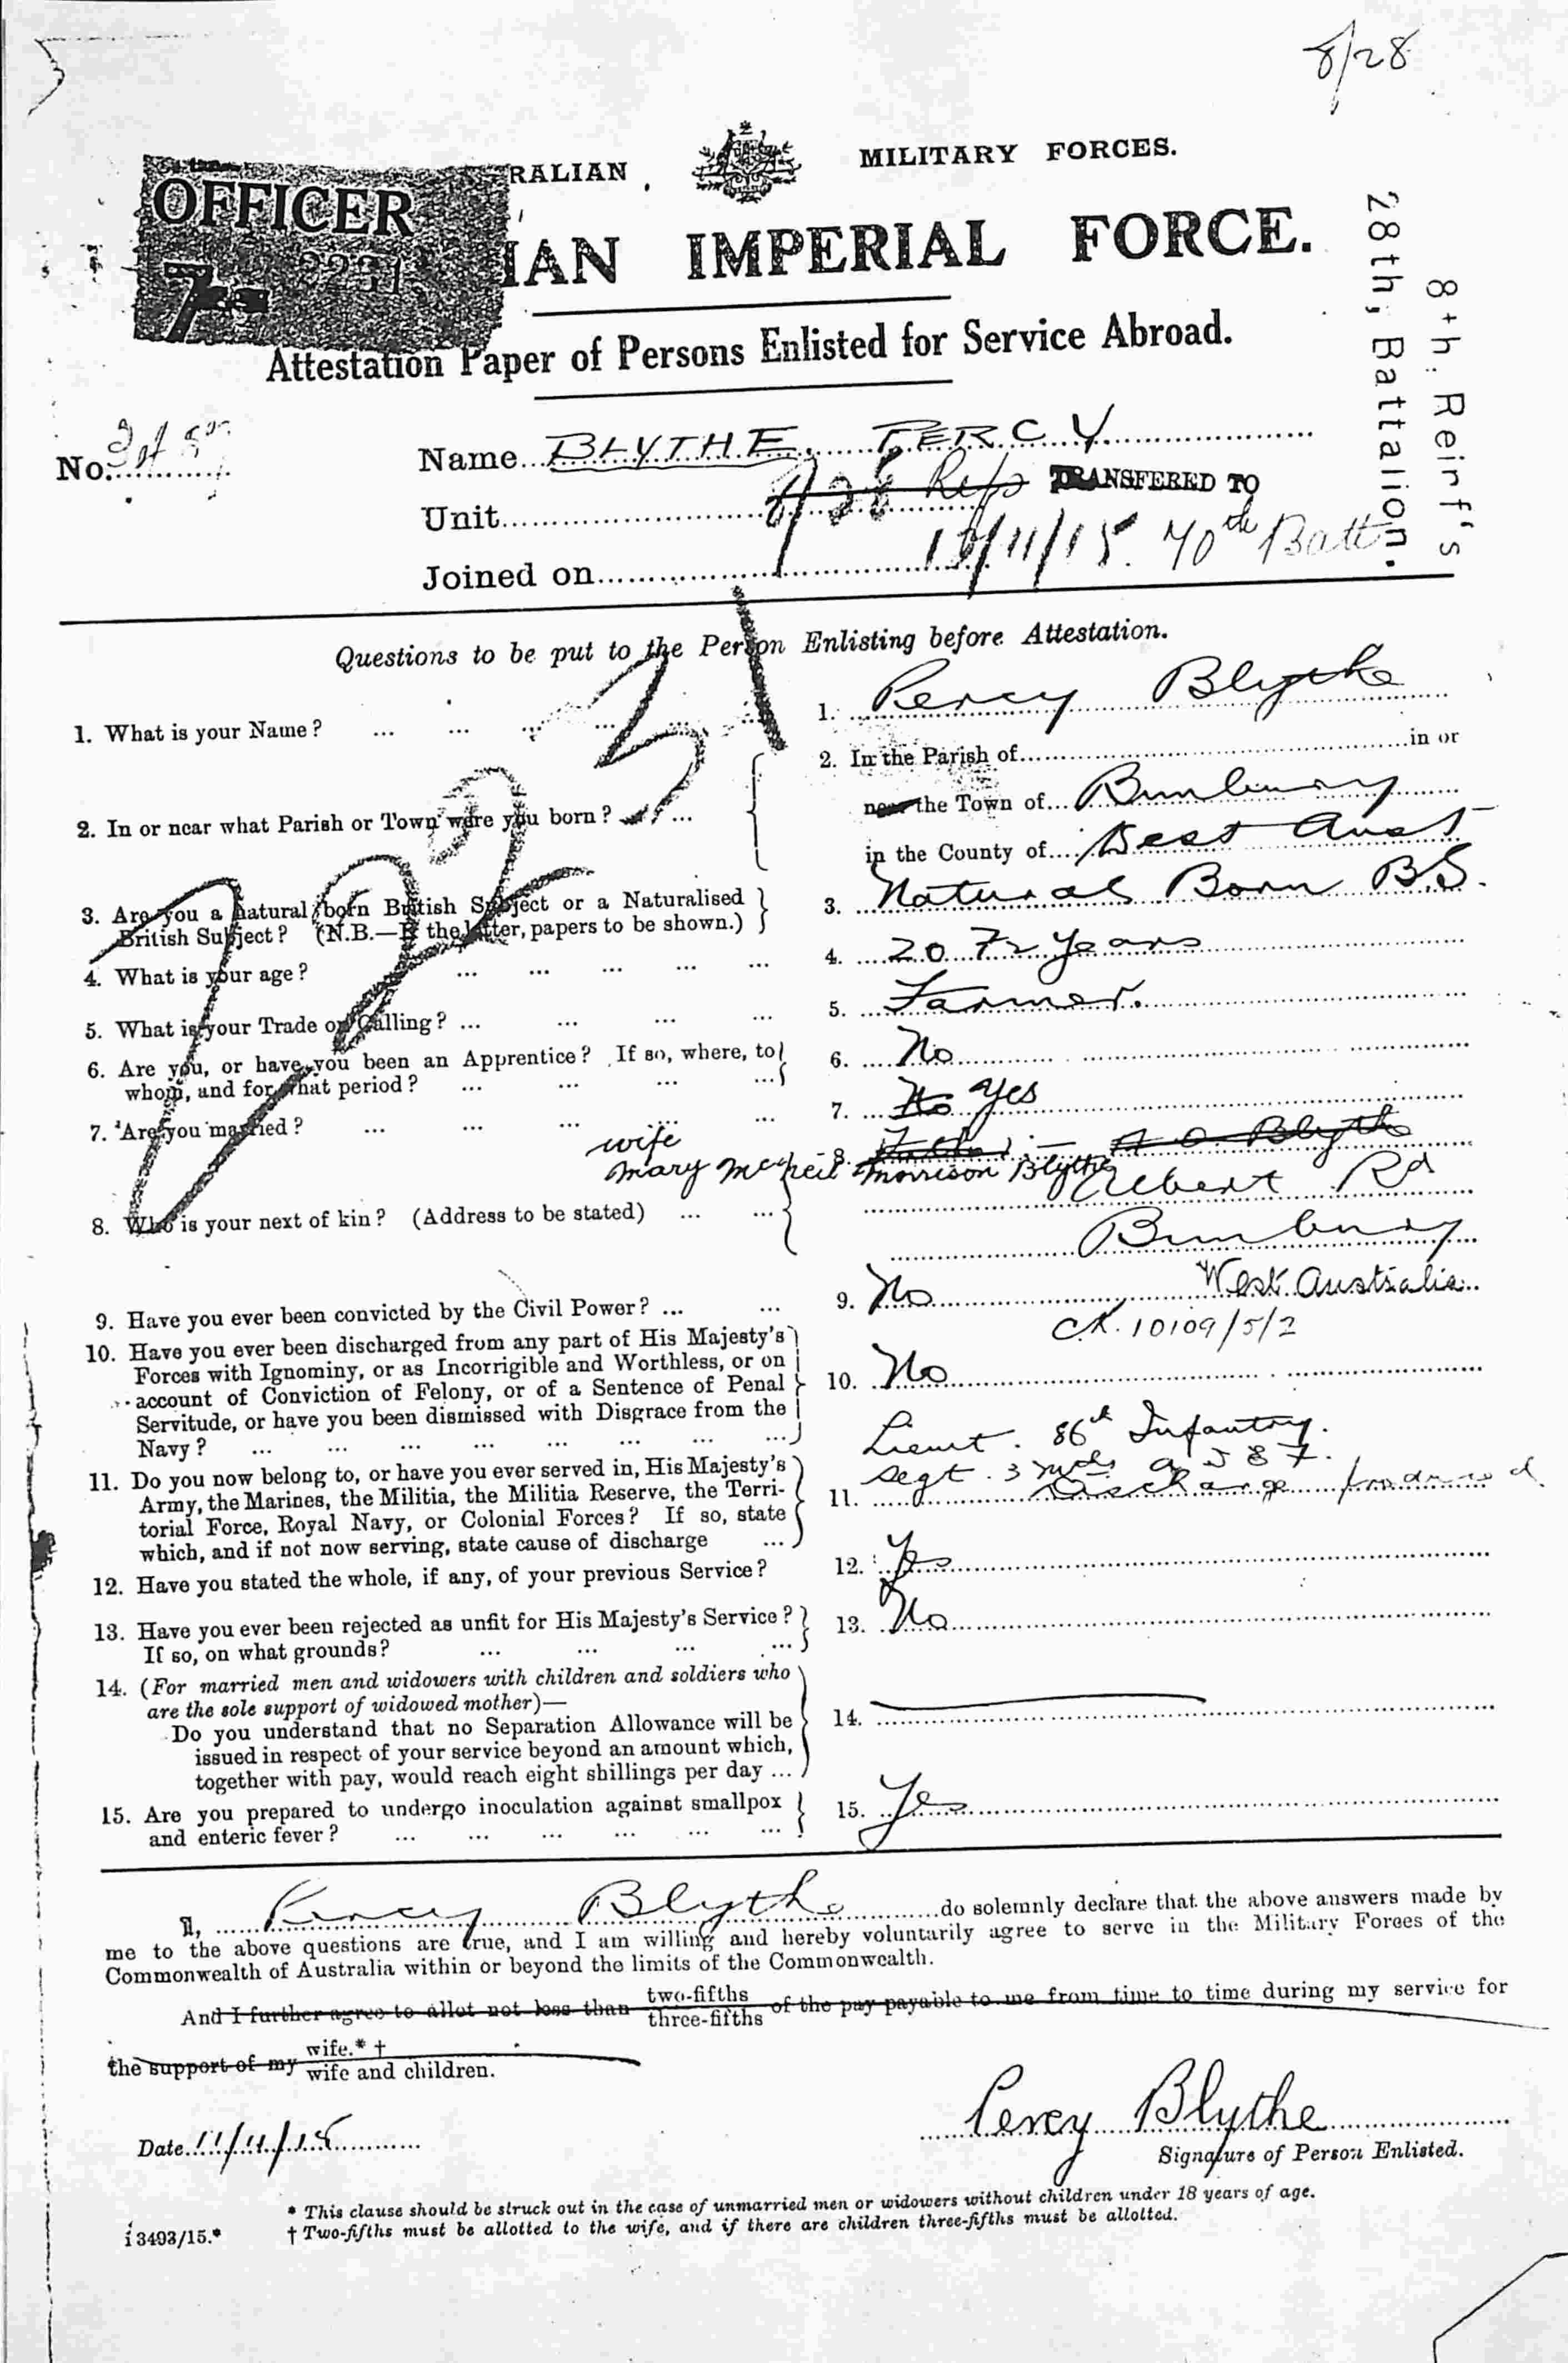 8/28
RALIAN MILITARY FORCES.
OFFICER
IAN IMPERIAL FORCE.
Attestation Paper of Persons Enlisted for Service Abroad.
28th, Battalion.
8th. Reinf's
No.
Name BLYTHE, PERCY
Unit 8/28 Refs TRANSFERED TO
40th Batt
Joined on 10/11/15.
Questions to be put to the Person Enlisting before Attestation.
1. What is your Name? ... 1. Percy Blythe
2. In or near what Parish or Town were you born? ... 2. In the Parish of in or
near the Town of Bunbury
in the County of West Aust
3. Are you a natural born British Subject or a Naturalised 3. Natural Born BS.
British Subject? (N.B.—If the latter, papers to be shown.)
4. What is your age? ... 4. 20 7/12 Years
5. What is your Trade or Calling? ... 5. Farmer.
6. Are you, or have you been an Apprentice? If so, where, to 6. No
whom, and for what period? ...
7. Are you married? ... 7. No Yes
wife 8. Father:— A O. Blythe
Mary McNeil Morrison Blythe
Albert Rd
8. Who is your next of kin? (Address to be stated) ...
Bunbury
West Australia
9. Have you ever been convicted by the Civil Power? ... 9. No
CR. 10109/5/2
10. Have you ever been discharged from any part of His Majesty's 10. No
Forces with Ignominy, or as Incorrigible and Worthless, or on
account of Conviction of Felony, or of a Sentence of Penal
Servitude, or have you been dismissed with Disgrace from the
Navy? ...
Lieut. 86th Infantry.
11. Do you now belong to, or have you ever served in, His Majesty's 11. Segt. 3 mths
Army, the Marines, the Militia, the Militia Reserve, the Terri- Discharge produced
torial Force, Royal Navy, or Colonial Forces? If so, state
which, and if not now serving, state cause of discharge ...
12. Have you stated the whole, if any, of your previous Service? 12. Yes
13. Have you ever been rejected as unfit for His Majesty's Service? 13. No
If so, on what grounds? ...
14. (For married men and widowers with children and soldiers who
are the sole support of widowed mother)—
Do you understand that no Separation Allowance will be 14.
issued in respect of your service beyond an amount which,
together with pay, would reach eight shillings per day ...
15. Are you prepared to undergo inoculation against smallpox 15. Yes
and enteric fever? ...
I, Percy Blythe do solemnly declare that the above answers made by
me to the above questions are true, and I am willing and hereby voluntarily agree to serve in the Military Forces of the
Commonwealth of Australia within or beyond the limits of the Commonwealth.
And I further agree to allot not less than two-fifths three-fifths of the pay payable to me from time to time during my service for
the support of my wife.* † wife and children.
Percy Blythe
Date 11/11/15
Signature of Person Enlisted.
* This clause should be struck out in the case of unmarried men or widowers without children under 18 years of age.
i 3493/15.* † Two-fifths must be allotted to the wife, and if there are children three-fifths must be allotted.